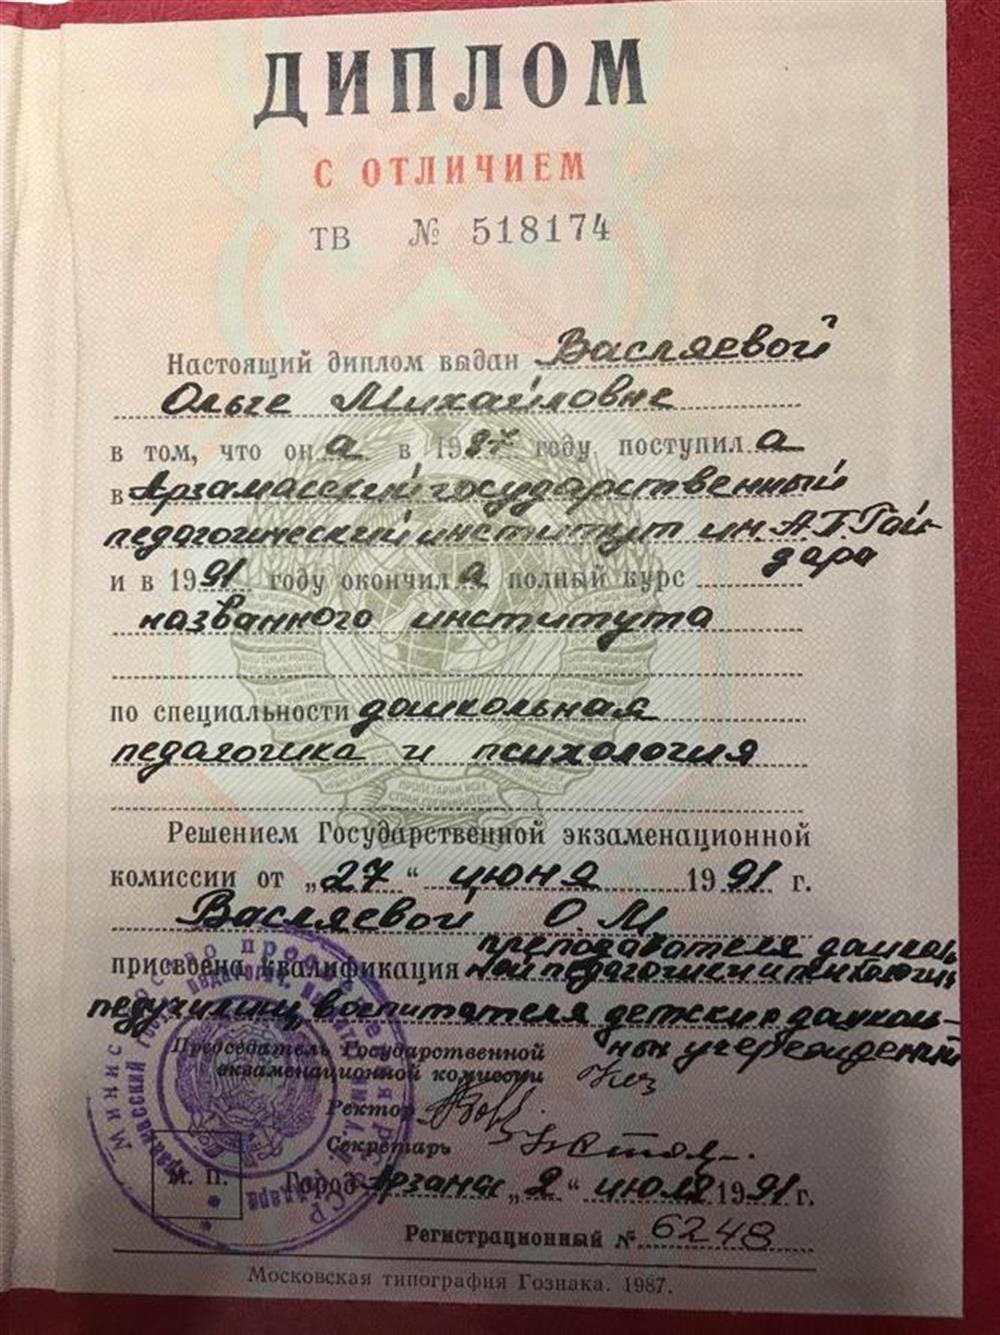 ДИПЛОМ
С ОТЛИЧИЕМ
ТВ № 518174
Настоящий диплом выдан Васляевой
Ольге Михайловне
в том, что она в 1987 году поступила
в Арзамасский государственный
педагогический институт им. А.П. Гай-
дара
и в 1991 году окончила полный курс
названного института
по специальности дошкольная
педагогика и психология
Решением Государственной экзаменационной
комиссии от „27“ июня 1991 г.
Васляевой О.М.
преподавателя дошколь
присвоена квалификация ной педагогики и психологии
педучилищ, воспитателя детских дошколь-
ных учереждений
Председатель Государственной
экзаменационной комиссии
Ректор
Секретарь
М. П.
Город Арзамас „2“ июля 1991 г.
Регистрационный № 6248
Московская типография Гознака. 1987.